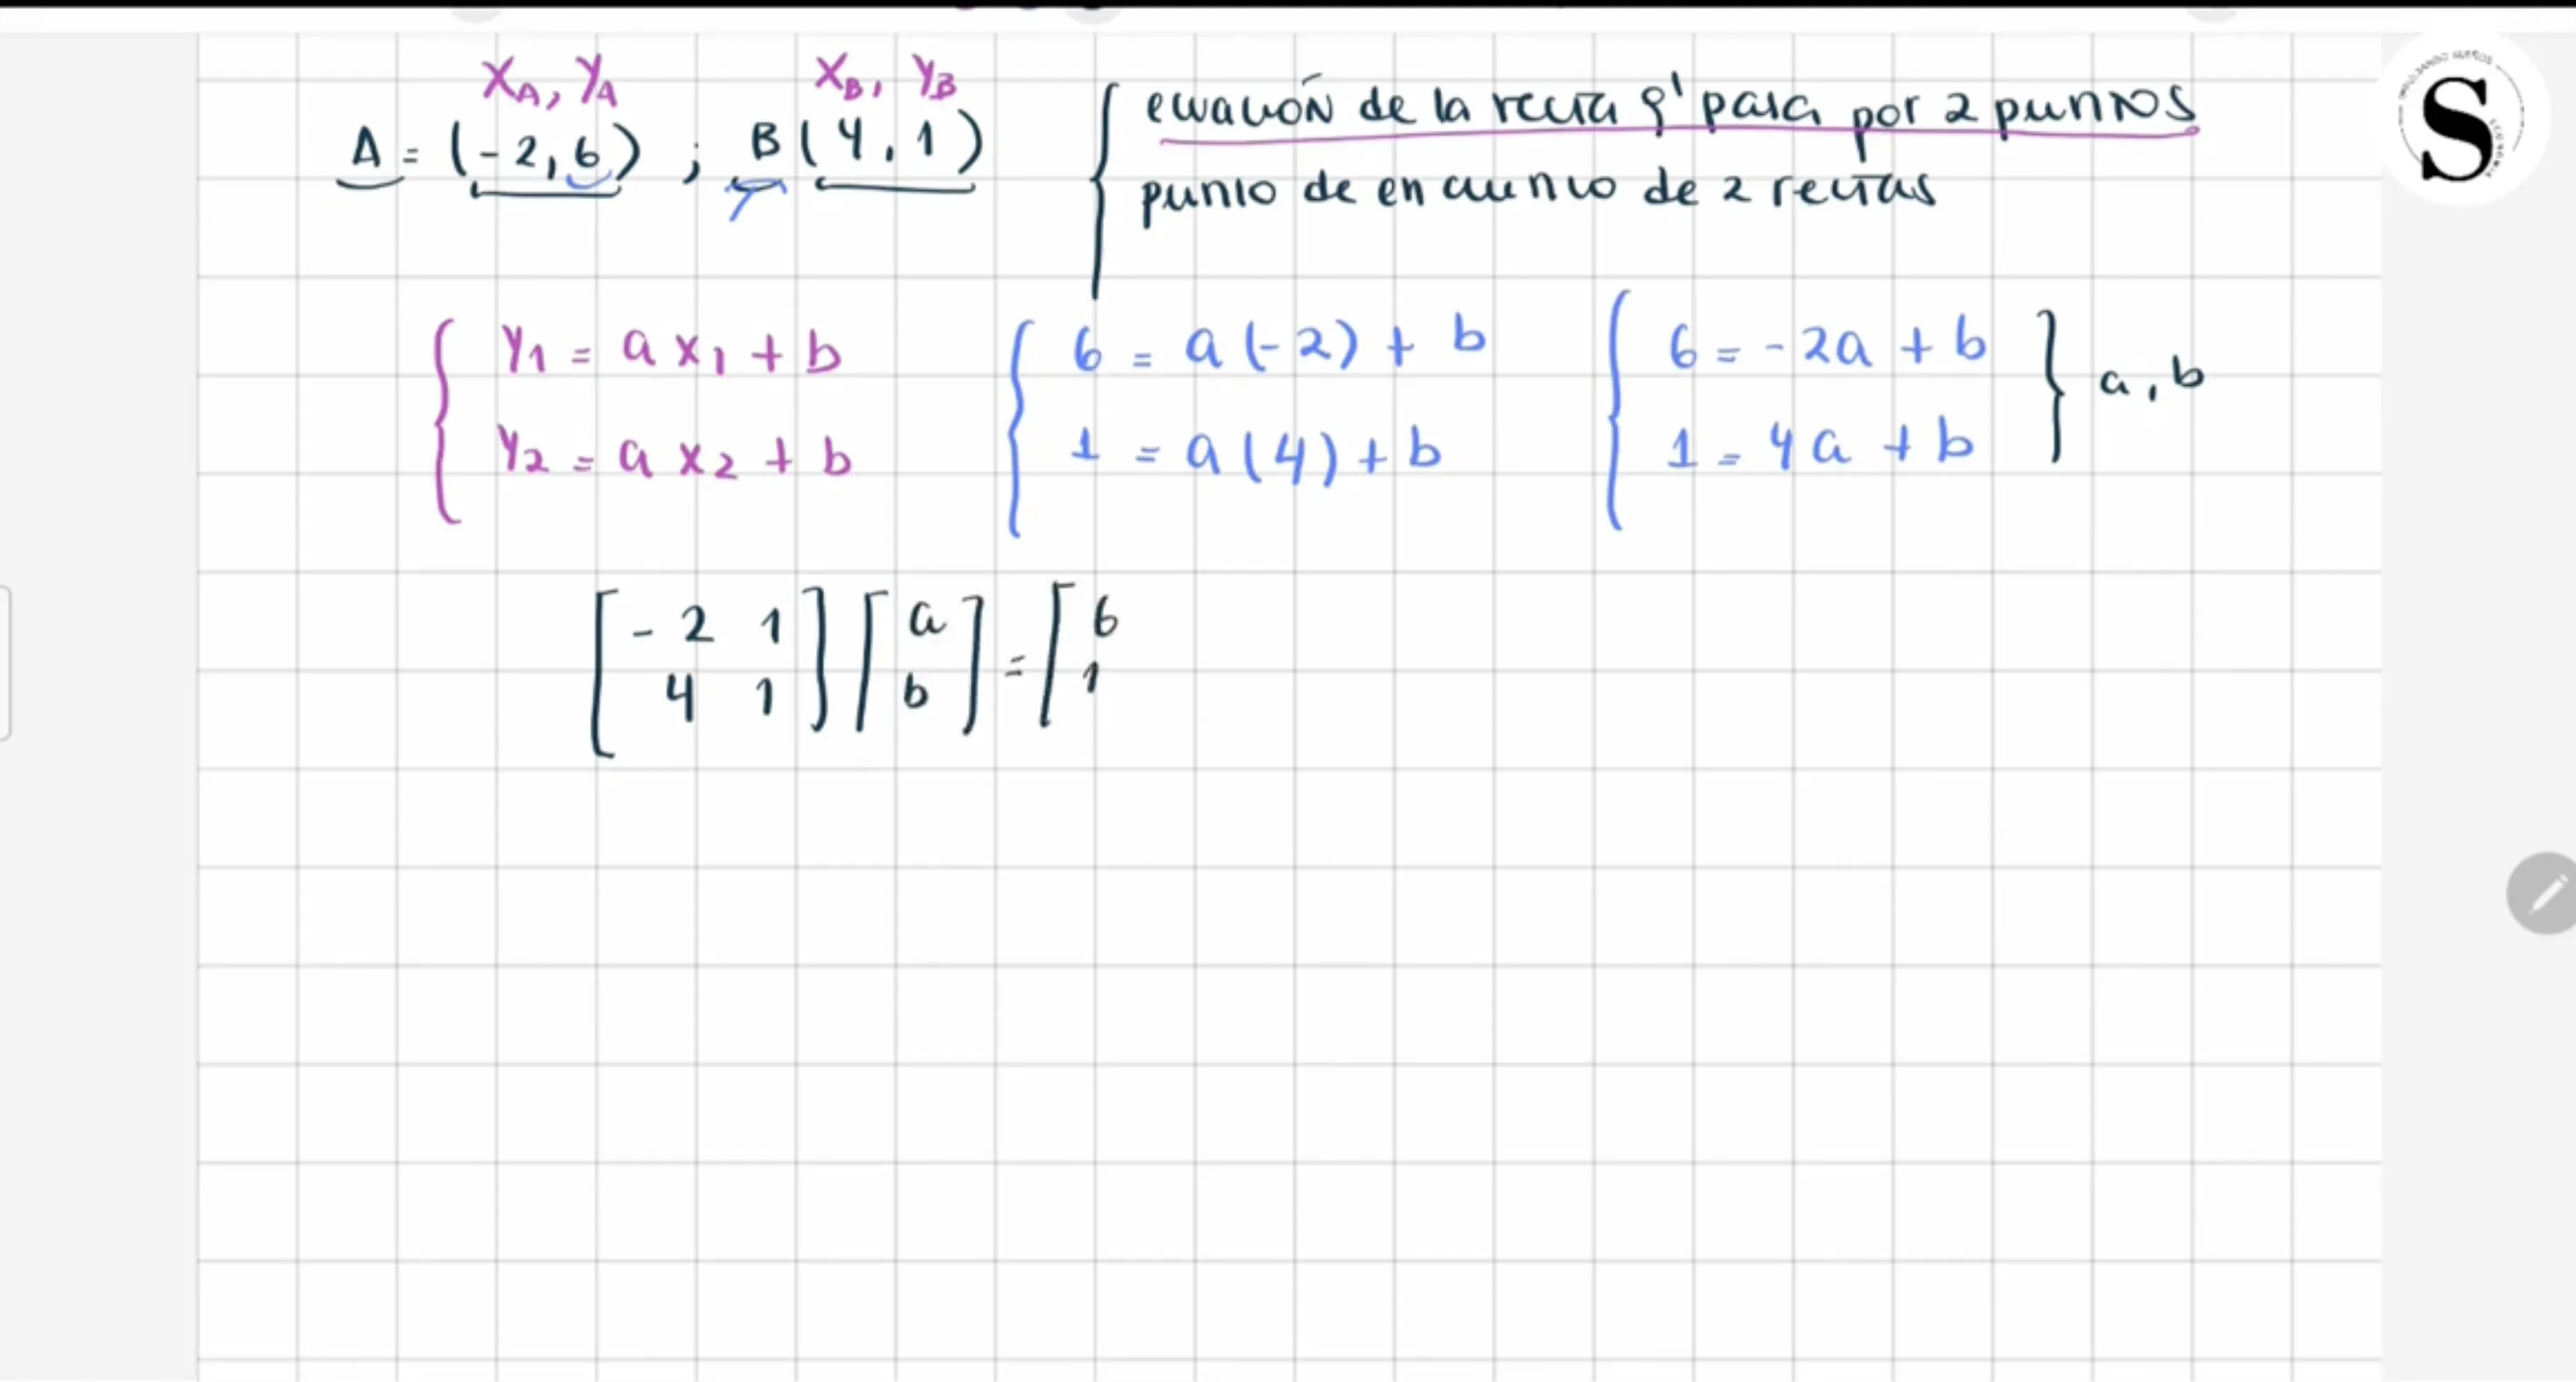 X_A, Y_A X_B, Y_B
A = (-2, 6) ; B(4, 1)
ecuación de la recta q' pasa por 2 puntos
punto de encuentro de 2 rectas
Y1 = a x1 + b
Y2 = a x2 + b
6 = a(-2) + b
1 = a(4) + b
6 = -2a + b
1 = 4a + b
a, b
[-2 1] [a] = [6
[4 1] [b] [1
S